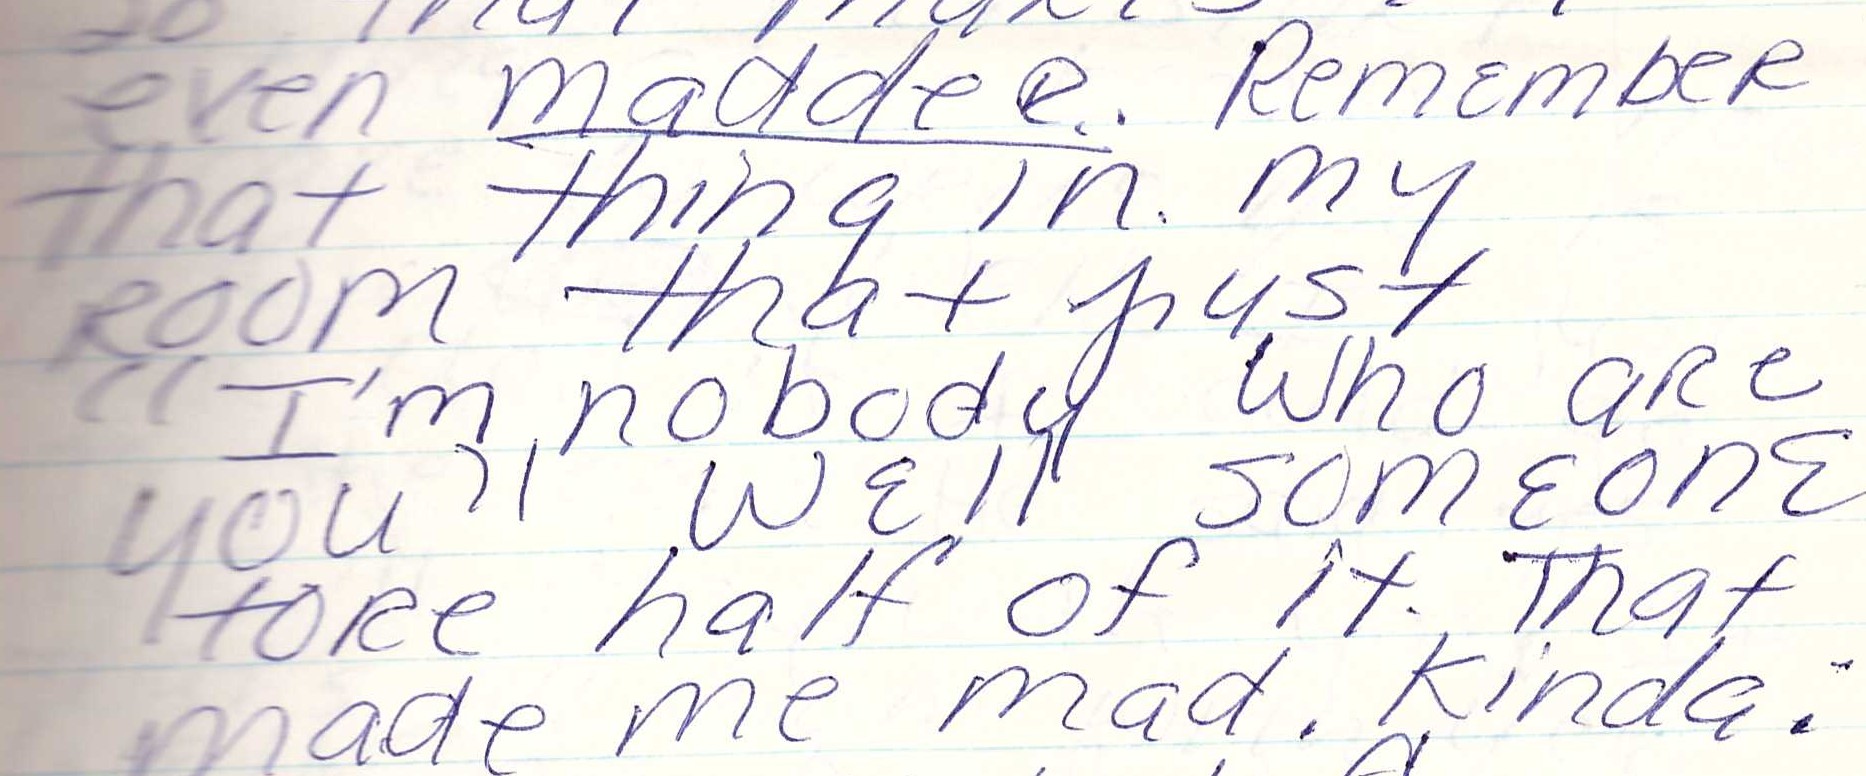 so that makes
even madder.. Remember
that thing in my
room that just
"I'm nobody who are
you" well someone
tore half of it. That
made me mad. Kinda.